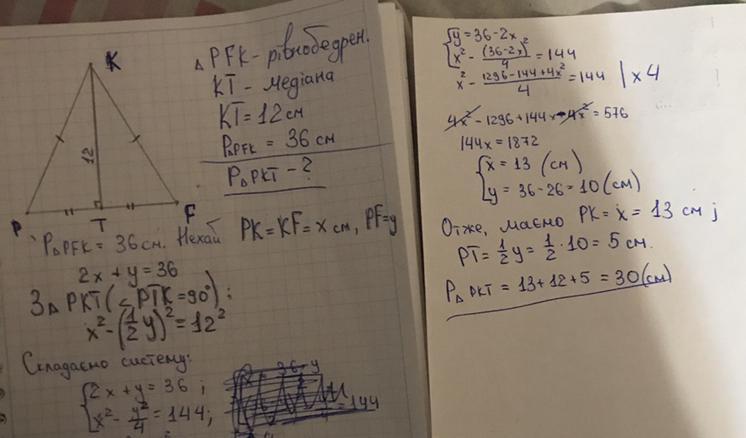 K
12
P
T
F
△PFK - рівнобедрен.
KT - медіана
KT = 12 см
P△PFK = 36 см
P△PKT - ?
P△PFK = 36 см. Нехай PK = KF = x см, PF = y
2x + y = 36
З △ PKT (∠PTK = 90°);
x² - (½y)² = 12²
Складаємо систему:
{2x + y = 36;
x² - y²/4 = 144;
{y = 36 - 2x
x² - (36-2x)²/4 = 144
x² - 1296 - 144 + 4x²/4 = 144 | x 4
4x² - 1296 + 144x - 4x² = 576
144x = 1872
{x = 13 (см)
y = 36 - 26 = 10 (см)
Отже, маємо PK = x = 13 см;
PT = ½y = ½ · 10 = 5 см.
P△PKT = 13 + 12 + 5 = 30 (см)